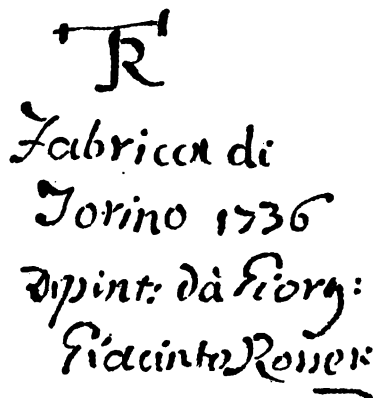 TR
Fabricca di
Torino 1736
Dipint: dà Giorg:
Giacinto Rosser